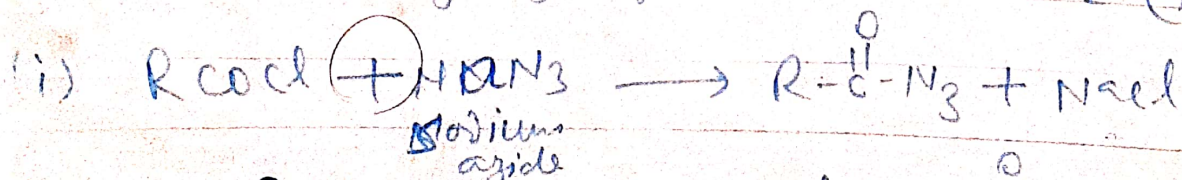 (i) RCOCl + NaN3 ⟶ R-C-N3 + NaCl
O
||
Sodium
azide
O